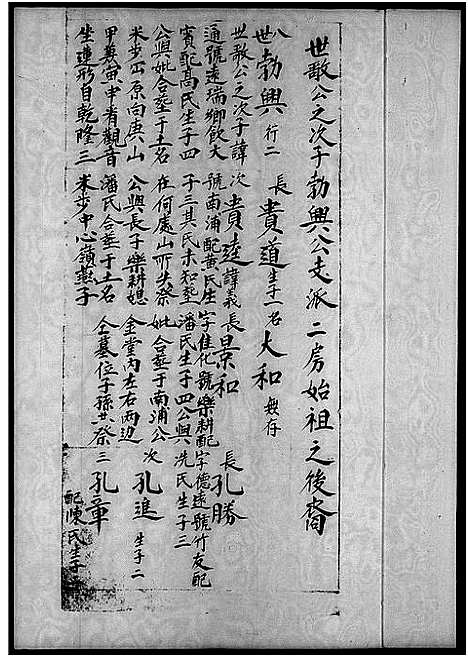 世敬公之次子勃興公支派二房始祖之後裔
八世勃興 行二 長貴道 生子一名 大和 無存
世敬公之次子諱 次貴達 諱義 長景和 長孔勝
通號遠瑞鄉飲大 號南浦配黃氏生 字佳化號樂耕配 字德遠號竹友配
賓配髙氏生子四 子三其氏未知塟 潘氏生子四公與 冼氏生子三
公與妣合塟于土名 在何處山所失祭 妣合塟于南浦公 次孔進 生子二
米步 原向庚山 公與長子樂耕媳 金堂內左右兩边
甲 寅申看觀音 潘氏合塟于土名 仝墓位子孫共祭 三孔章
坐蓮形自乾隆三 米步中心嶺燕子 配陳氏生子